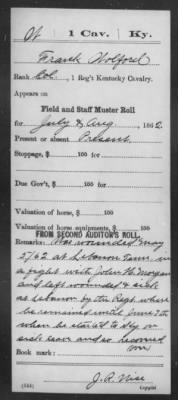 W 1 Cav. Ky.
Frank Wolford
Rank Col., 1 Reg't Kentucky Cavalry.
Appears on
Field and Staff Muster Roll
for July & Aug, 1862.
Present or absent Present
Stoppage, $ 100 for
Due Gov't, $ 100 for
Valuation of horse, $ 100
Valuation of horse equipments, $ 100
FROM SECOND AUDITOR'S ROLL.
Remarks: Was wounded May
27/62 at Lebanon Tenn in
a fight with John H Morgan
and left wounded & sick
at Lebanon by the Regt. where
he remained until June
when he started to
sick leave and so
Book mark:
J. R. Wise
(544) Copyist.